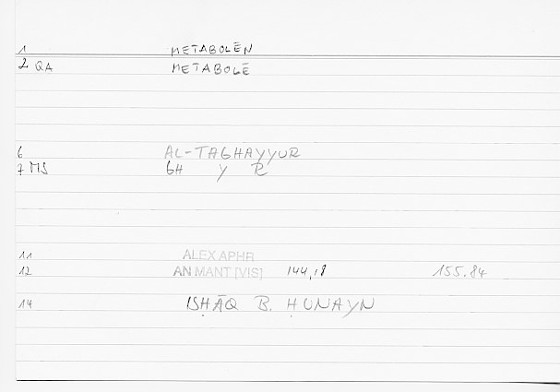 1 METABOLĒN
2 QA METABOLĒ
6 AL-TAGHAYYUR
7 MS GH Y R
11 ALEX APHR
12 AN MANT [VIS] 144,18 155.84
14 ISḤĀQ B. ḤUNAYN